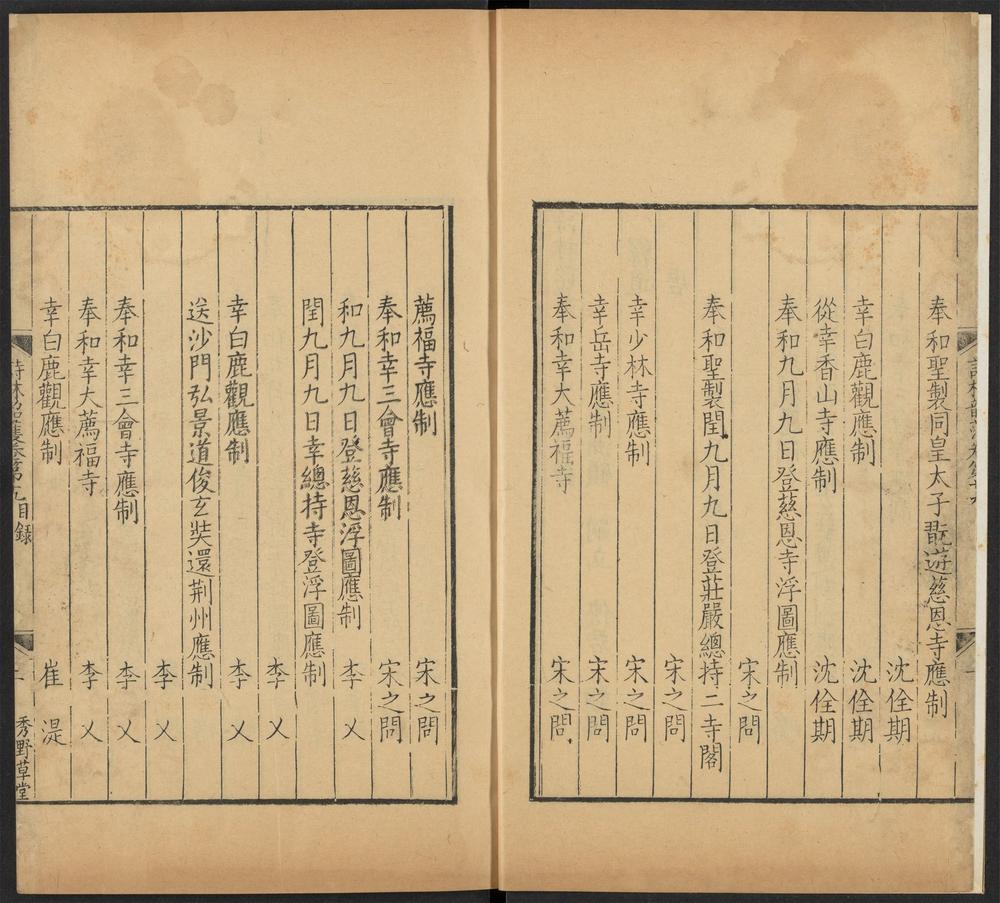 奉和聖製同皇太子翫遊慈恩寺應制
沈佺期
幸白鹿觀應制　沈佺期
從幸香山寺應制　沈佺期
奉和九月九日登慈恩寺浮圖應制
宋之問
奉和聖製閏九月九日登莊嚴總持二寺閣
宋之問
幸少林寺應制　宋之問
幸岳寺應制　宋之問
奉和幸大薦福寺　宋之問
薦福寺應制　宋之問
奉和幸三會寺應制　宋之問
和九月九日登慈恩浮圖應制　李乂
閏九月九日幸總持寺登浮圖應制
李乂
幸白鹿觀應制　李乂
送沙門弘景道俊玄奘還荆州應制
李乂
奉和幸三會寺應制　李乂
奉和幸大薦福寺　李乂
幸白鹿觀應制　崔湜
詩林韶濩卷第九目録　二　秀野草堂